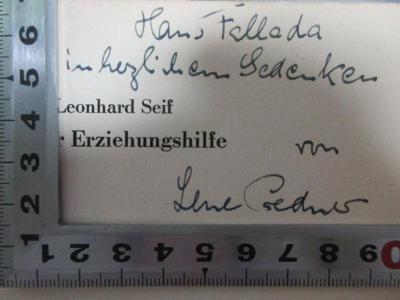 Hans Fallada
in herzlichem Gedenken
Leonhard Seif
r Erziehungshilfe
von
Lene Credner
6
5
4
3
2
1
1 2 3 4 5 6 7 8 9 0